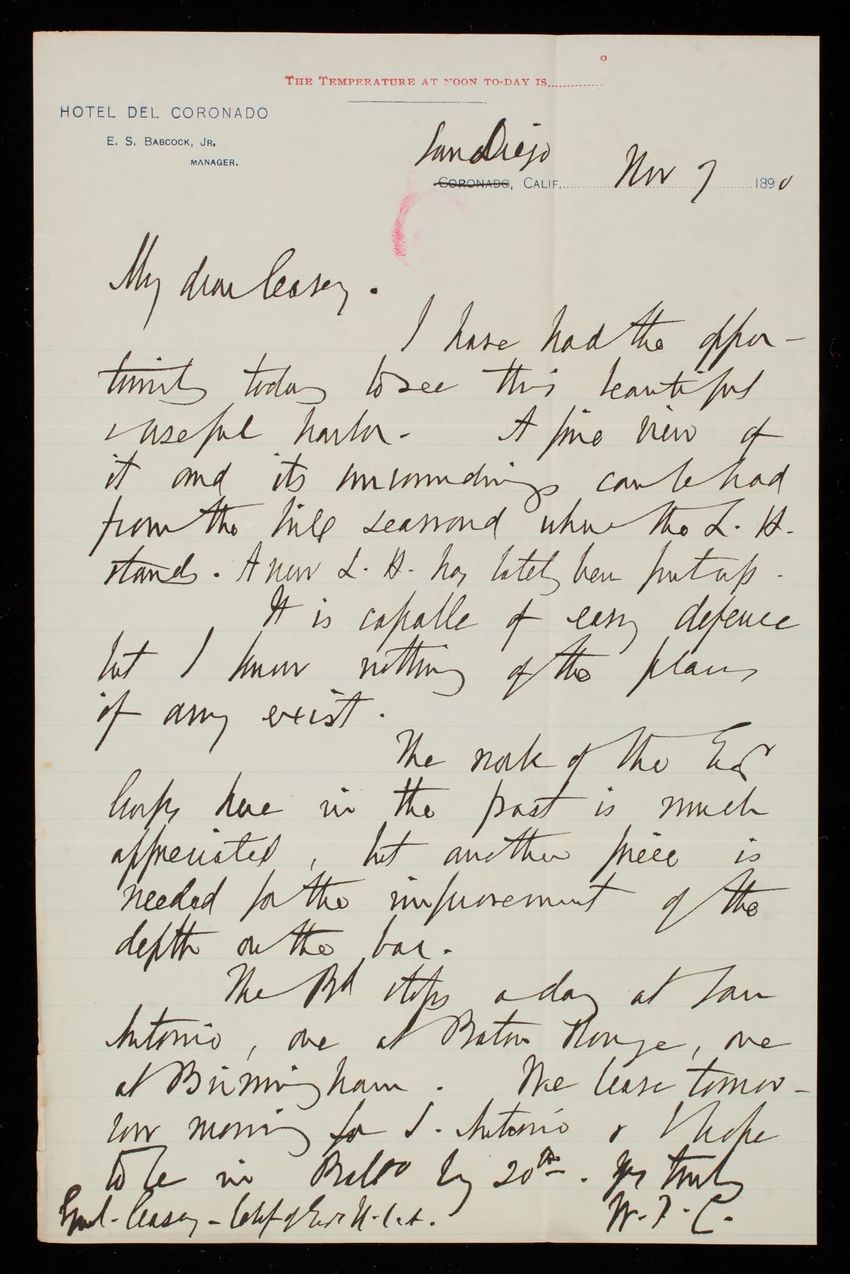 THE TEMPERATURE AT NOON TO-DAY IS.............°
HOTEL DEL CORONADO
E. S. BABCOCK, JR.
MANAGER.
San Diego
CORONADO, CALIF. Nov 7 1890
My dear Casey.
I have had the oppor-
tunity today to see this beautiful
& useful harbor. A fine view of
it and its surroundings can be had
from the hill seaward where the L. H.
stands. A new L. H. has lately been put up.
It is capable of easy defence
but I know nothing of the plans
if any exist.
The work of the Engr
Corps here in the past is much
appreciated, but another piece is
needed for the improvement of the
depth on the bar.
The Bd stops a day at San
Antonio, one at Baton Rouge, one
at Birmingham. We leave tomor-
row morning for S. Antonio & I hope
to be in Balto by 20th. Yrs truly
Genl. Casey - Chf of Engr U.S.A. W. P. C.